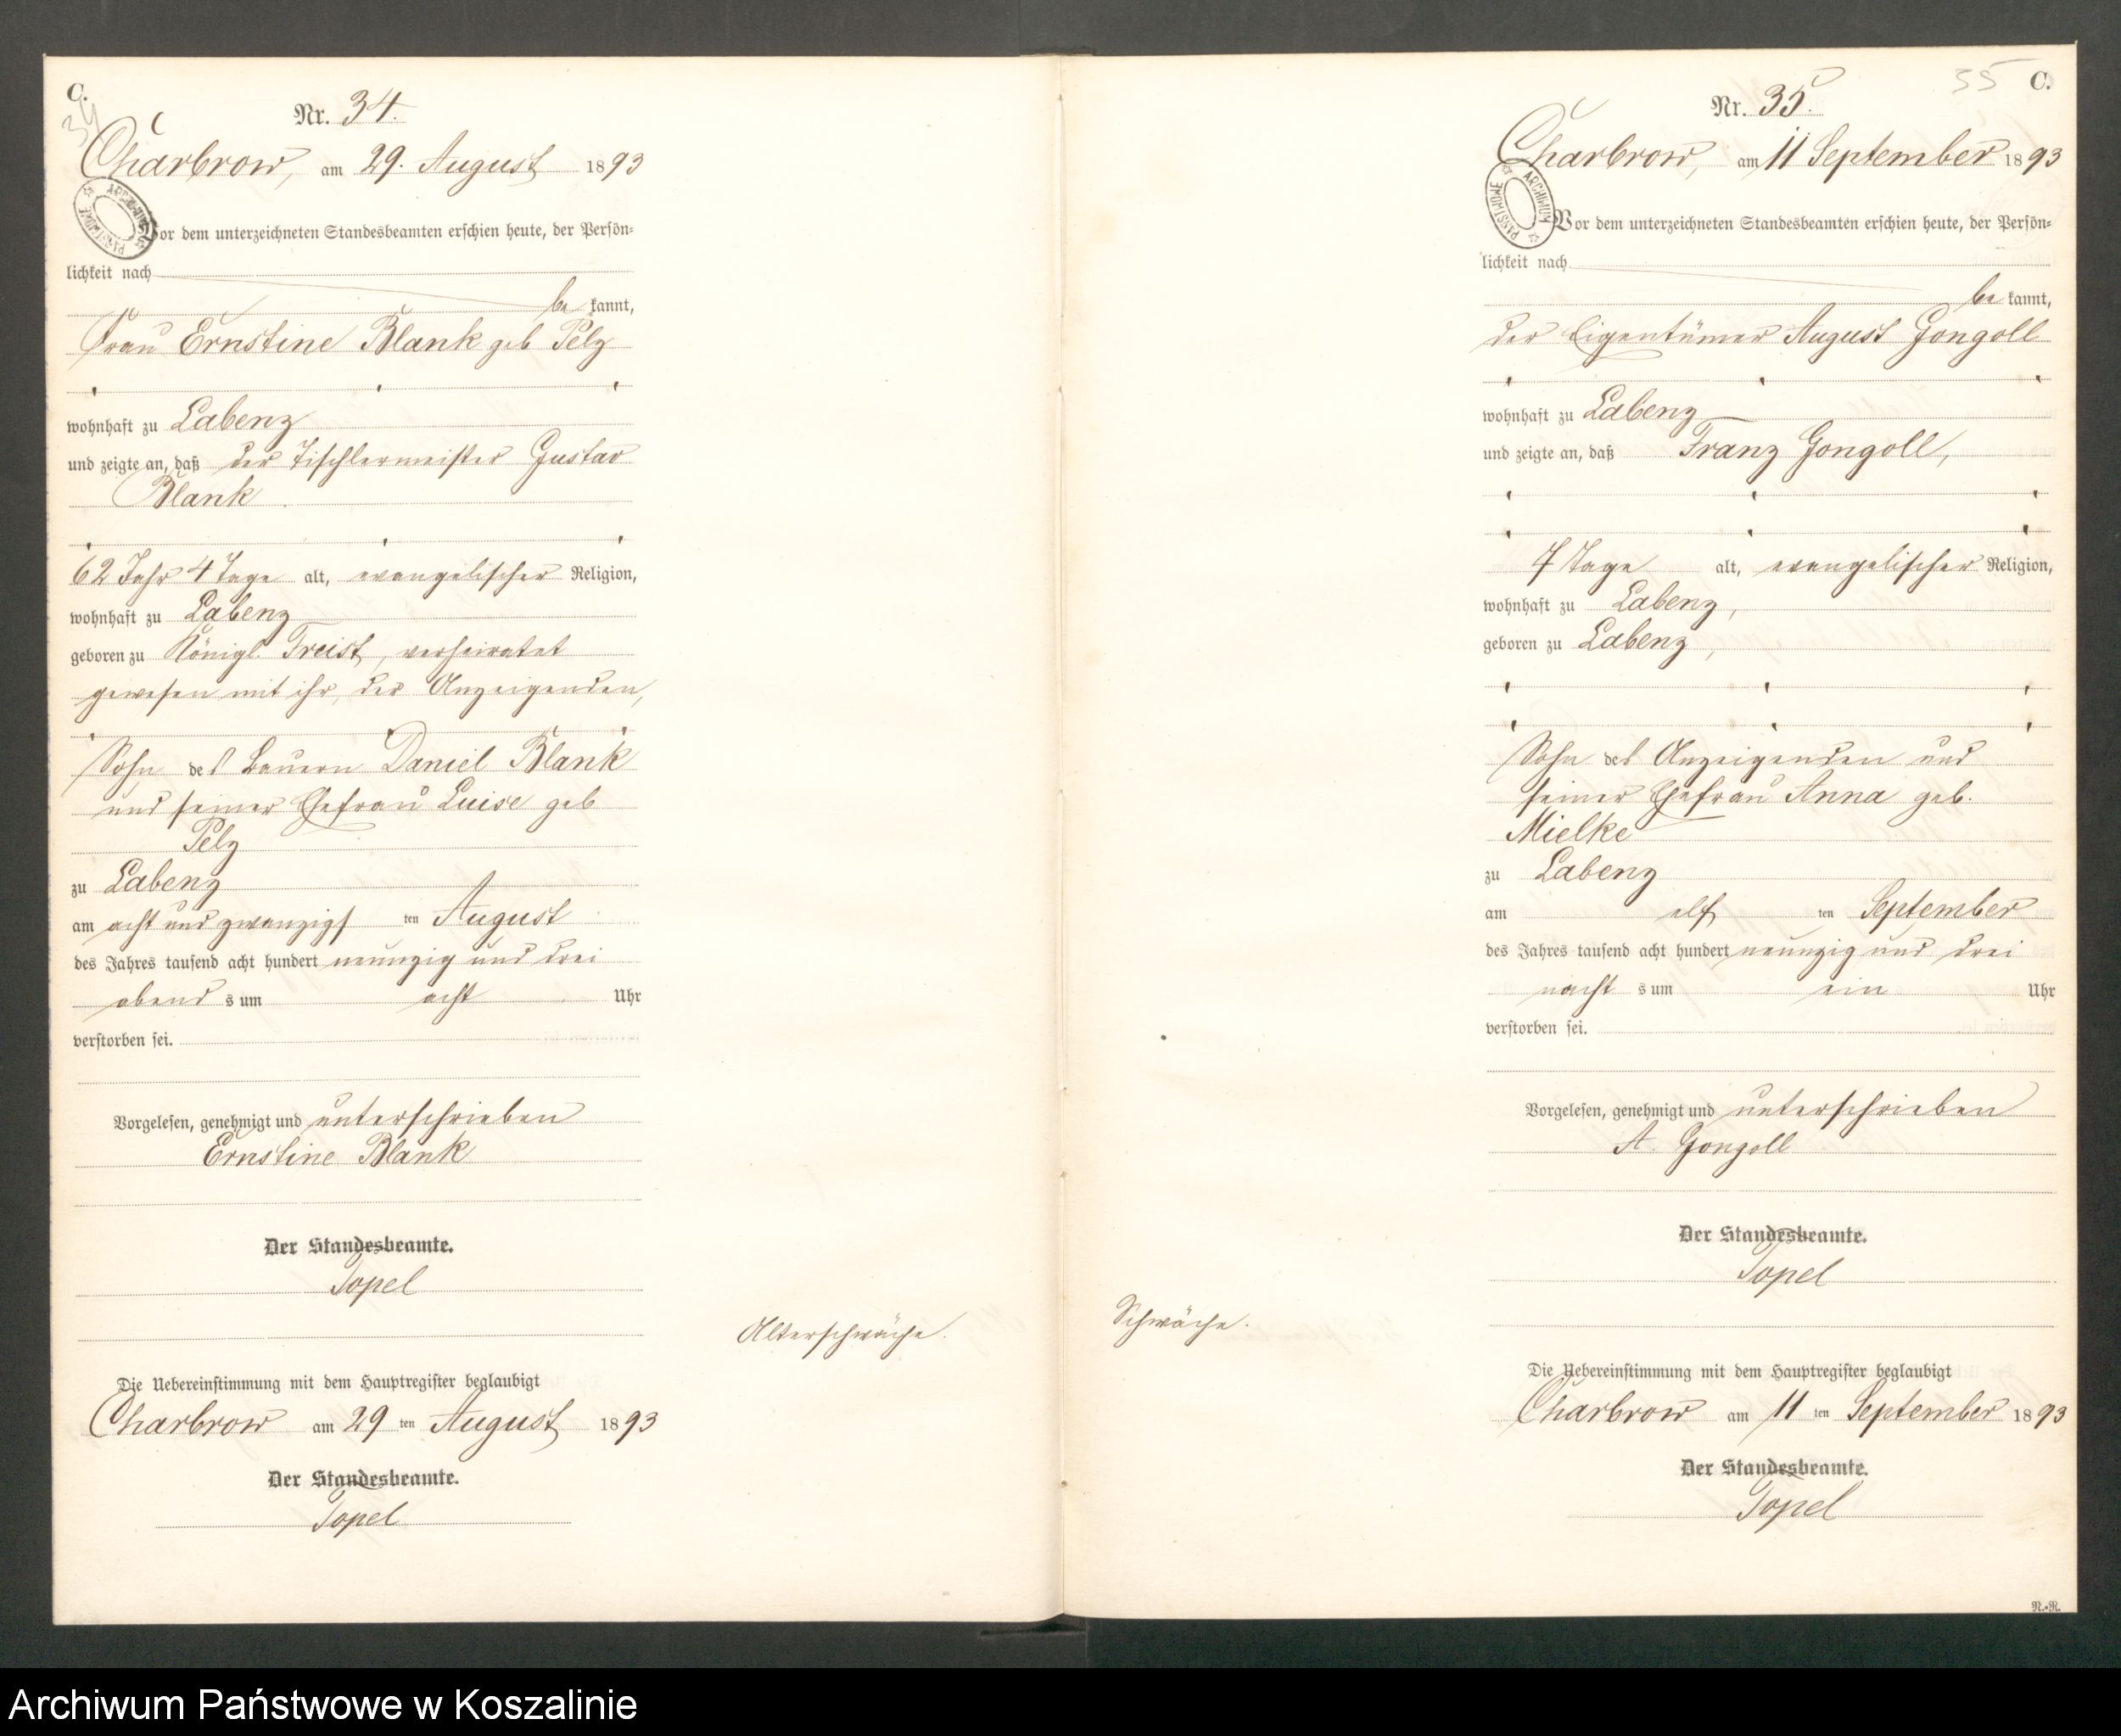 C.
34
Nr. 34.
Charbrow, am 29. August 1893
ARCHIWUM PAŃSTWOWE
Vor dem unterzeichneten Standesbeamten erschien heute, der Persön-
lichkeit nach
be kannt,
Frau Ernstine Blank geb Pelz
wohnhaft zu Labenz
und zeigte an, daß der Tischlermeister Gustav
Blank
62 Jahr 4 Tage alt, evangelischer Religion,
wohnhaft zu Labenz
geboren zu Königl. Freist, verheiratet
gewesen mit ihr, der Anzeigenden,
Sohn des Bauern Daniel Blank
und seiner Ehefrau Luise geb
Pelz
zu Labenz
am acht und zwanzigsten August
des Jahres tausend acht hundert neunzig und drei
abend s um acht Uhr
verstorben sei.
Vorgelesen, genehmigt und unterschrieben
Ernstine Blank
Der Standesbeamte.
Topel
Alterschwäche.
Die Uebereinstimmung mit dem Hauptregister beglaubigt
Charbrow am 29 ten August 1893
Der Standesbeamte.
Topel
35 C.
Nr. 35.
Charbrow, am 11 September 1893
ARCHIWUM PAŃSTWOWE
Vor dem unterzeichneten Standesbeamten erschien heute, der Persön-
lichkeit nach
be kannt,
der Eigentümer August Gongoll
wohnhaft zu Labenz
und zeigte an, daß Franz Gongoll,
7 Tage alt, evangelischer Religion,
wohnhaft zu Labenz,
geboren zu Labenz,
Sohn des Anzeigenden und
seiner Ehefrau Anna geb.
Mielke
zu Labenz
am elf ten September
des Jahres tausend acht hundert neunzig und drei
nacht s um ein Uhr
verstorben sei.
Vorgelesen, genehmigt und unterschrieben
A. Gongoll
Der Standesbeamte.
Topel
Schwäche.
Die Uebereinstimmung mit dem Hauptregister beglaubigt
Charbrow am 11 ten September 1893
Der Standesbeamte.
Topel
N.-N.
Archiwum Państwowe w Koszalinie